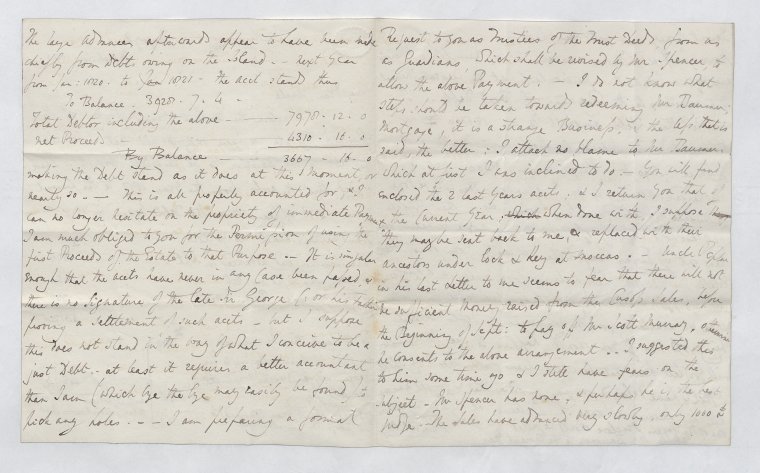 The large Advances afterwards appear to have been made
chiefly from Debt owing on the Island. - Next Year
from Jan: 1820. to Jan 1821 - the acct stands thus
To Balance. 3928. 7. 4 -
Total Debtor including the above - 7978 - 12. 0
net Proceeds - 4310 - 16. 0
By Balance 3667 - 16. 0
making the Debt stand as it does at this moment, or
nearly so. - This is all properly accounted for, & I
can no longer hesitate on the propriety of immediate
I am much obliged to you for the Permission of using the
first Proceeds of the Estate to that Purpose. - It is singular
enough that the accts have never in any Case been passed, &
there is no Signature of the late Sir George or his
proving a Settlement of such accts - but I suppose
this does not stand in the way of what I conceive to be a
just Debt. - at least it requires a better accountant
than I am (which bye the bye may easily be found) to
pick any holes. - - I am preparing a formal
Request to you as Trustees of the Trust Deeds from us
as Guardians which shall be revised by Mr Spencer to
allow the above Payment. - I do not know what
steps should be taken towards redeeming Mr
Mortgage, it is a strange Business, & the less that is
said, the better: I attach no blame to Mr
which at first I was inclined to do - You will find
enclosed the 2 last Years accts. & I return you that of
the Current Year. which when done with, I suppose
they may be sent back to me, & replaced with their
ancestors under lock & key at - Uncle
in his last letter to me seems to fear that there will not
be sufficient Money raised from the Sales, before
the Beginning of Sept: to pay off Mr Scott Murray,
he consents to the above arrangement. - I suggested this
to him some time ago & I still have years on the
subject - Mr Spencer has none, & perhaps he is the best
Judge. The Sales have advanced very slowly, only 1000